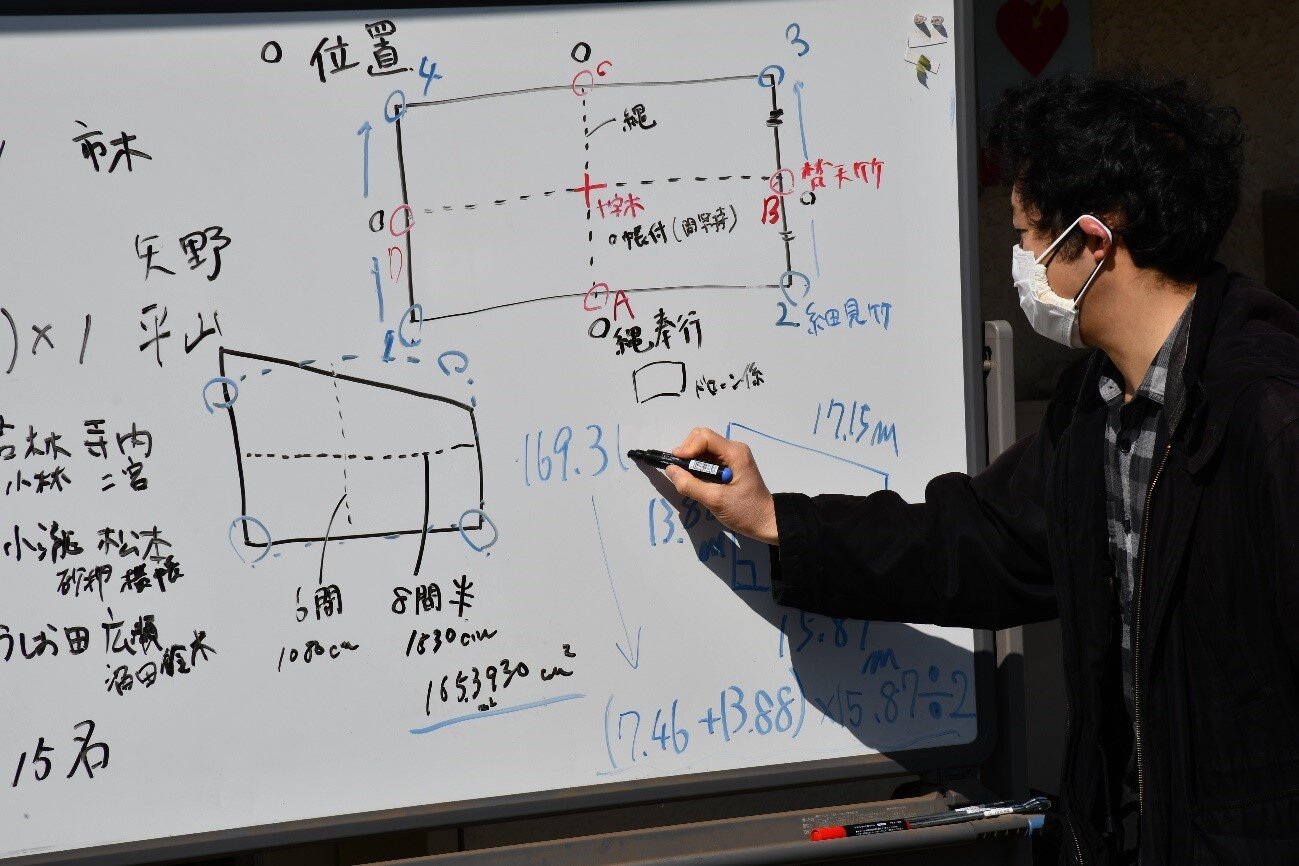 位置
4
3
C
縄
市木
梵天竹
B
十字木
帳付(間竿持)
矢野
D
A
1
2 細見竹
縄奉行
)×1 平山
ドローン係
17.15m
169.3
若林 寺内
小林 二宮
13.88
m
小滝 松本
うしお田 広瀬
沼田 鈴木
6間
8間半
1080cm
1830cm
15.87
m
1653930cm²
m²
(7.46+13.88)×15.87÷2
15名